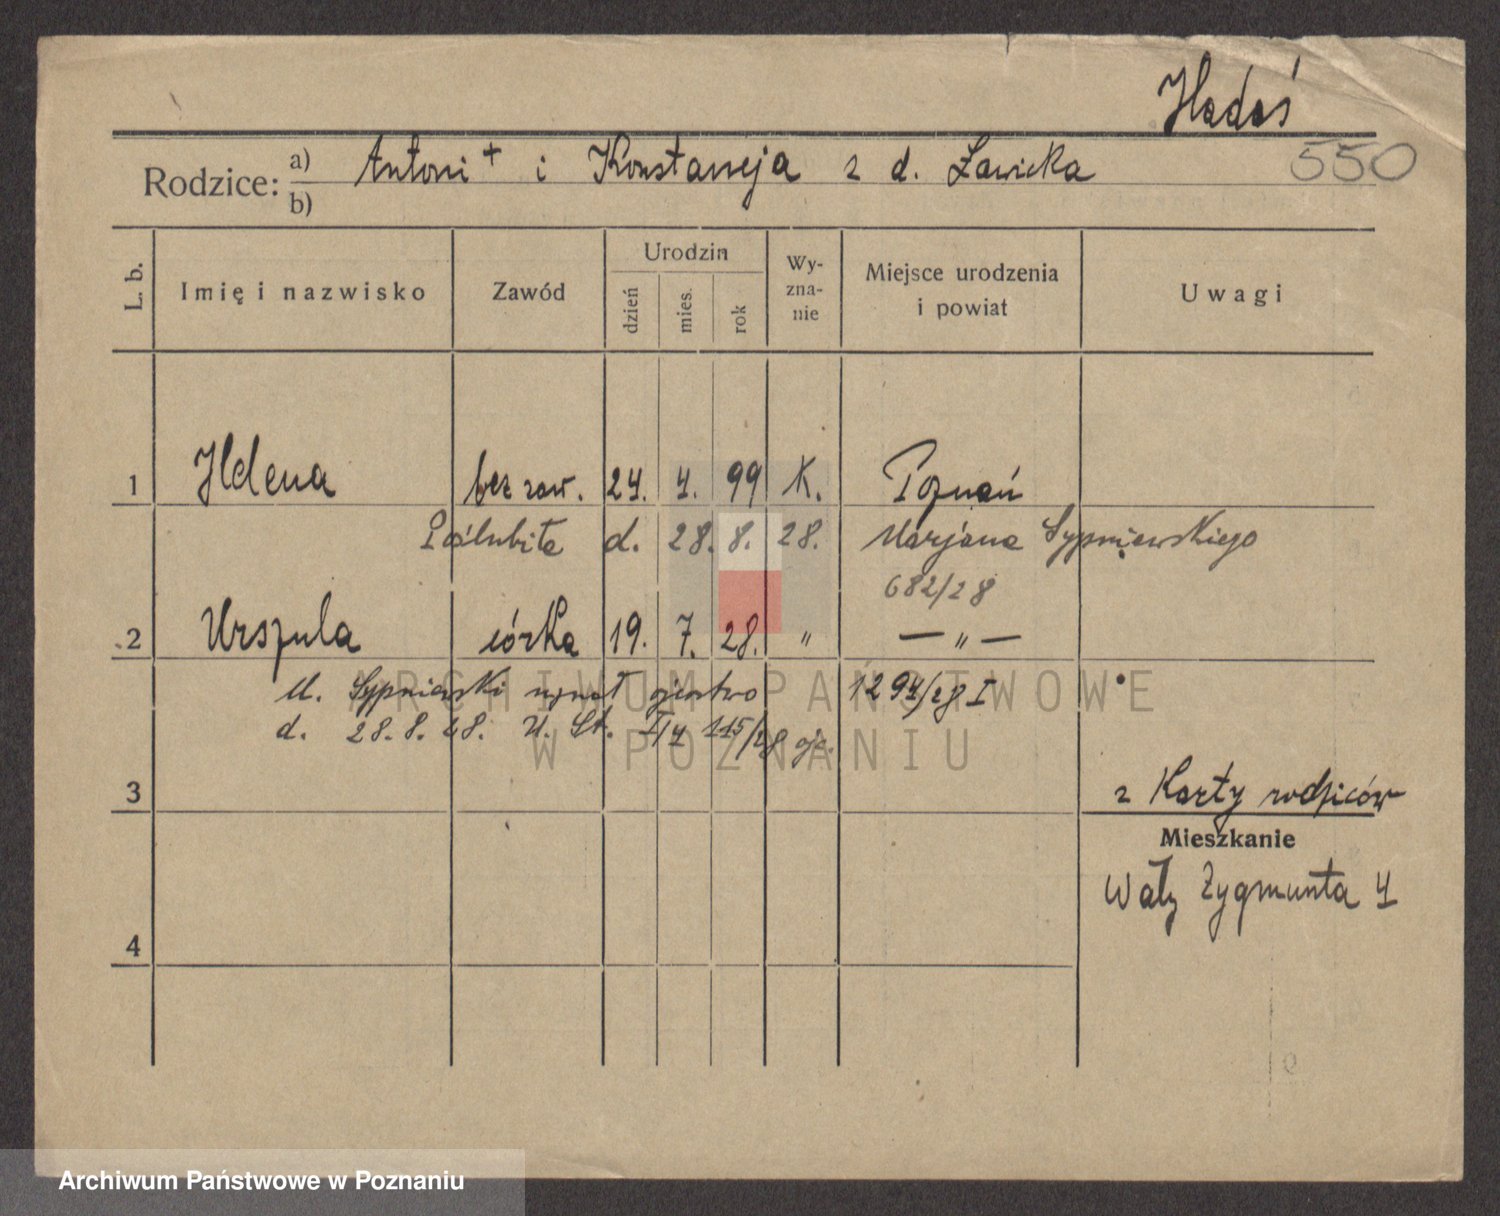 Hadaś
Rodzice: a) Antoni + i Konstancja z d. Ławicka 550
b)
L. b. Imię i nazwisko Zawód Urodzin dzień mies. rok Wy-zna-nie Miejsce urodzenia i powiat Uwagi
1 Helena bez zaw. 24. 4. 99 K. Poznań
Poślubiła d. 28. 8. 28. Marjana Sypniewskiego
682/28
2 Urszula córka 19. 7. 28. " — " —
M. Sypniewski uznał ojcostwo 1294/28 I
d. 28. 8. 28. U. St. 115/28
3 z Karty rodziców
Mieszkanie
Wały Zygmunta 4
4
ARCHIWUM PAŃSTWOWE
W POZNANIU
Archiwum Państwowe w Poznaniu